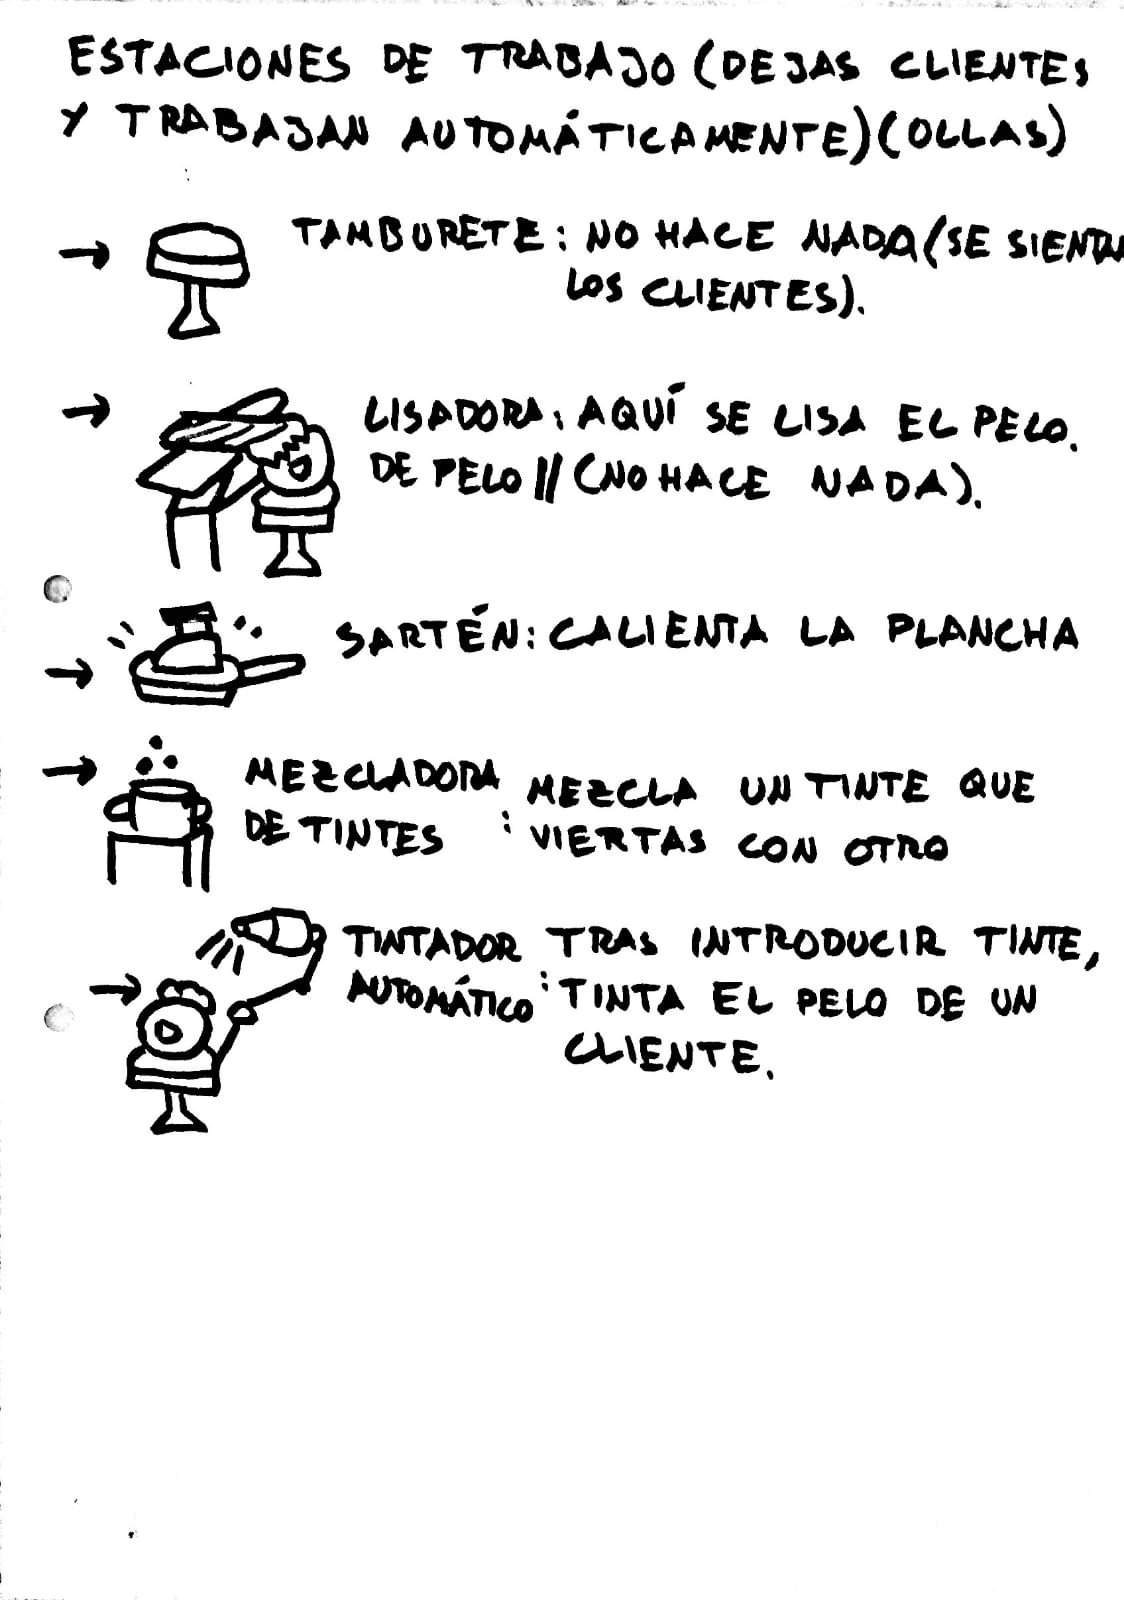 ESTACIONES DE TRABAJO (DEJAS CLIENTES
Y TRABAJAN AUTOMÁTICAMENTE) (OLLAS)
→ TAMBURETE: NO HACE NADA (SE SIENTAN
LOS CLIENTES).
→ LISADORA: AQUÍ SE LISA EL PELO.
DE PELO // (NO HACE NADA).
→ SARTÉN: CALIENTA LA PLANCHA
→ MEZCLADORA MEZCLA UN TINTE QUE
DE TINTES : VIERTAS CON OTRO
TINTADOR TRAS INTRODUCIR TINTE,
→ AUTOMÁTICO: TINTA EL PELO DE UN
CLIENTE.